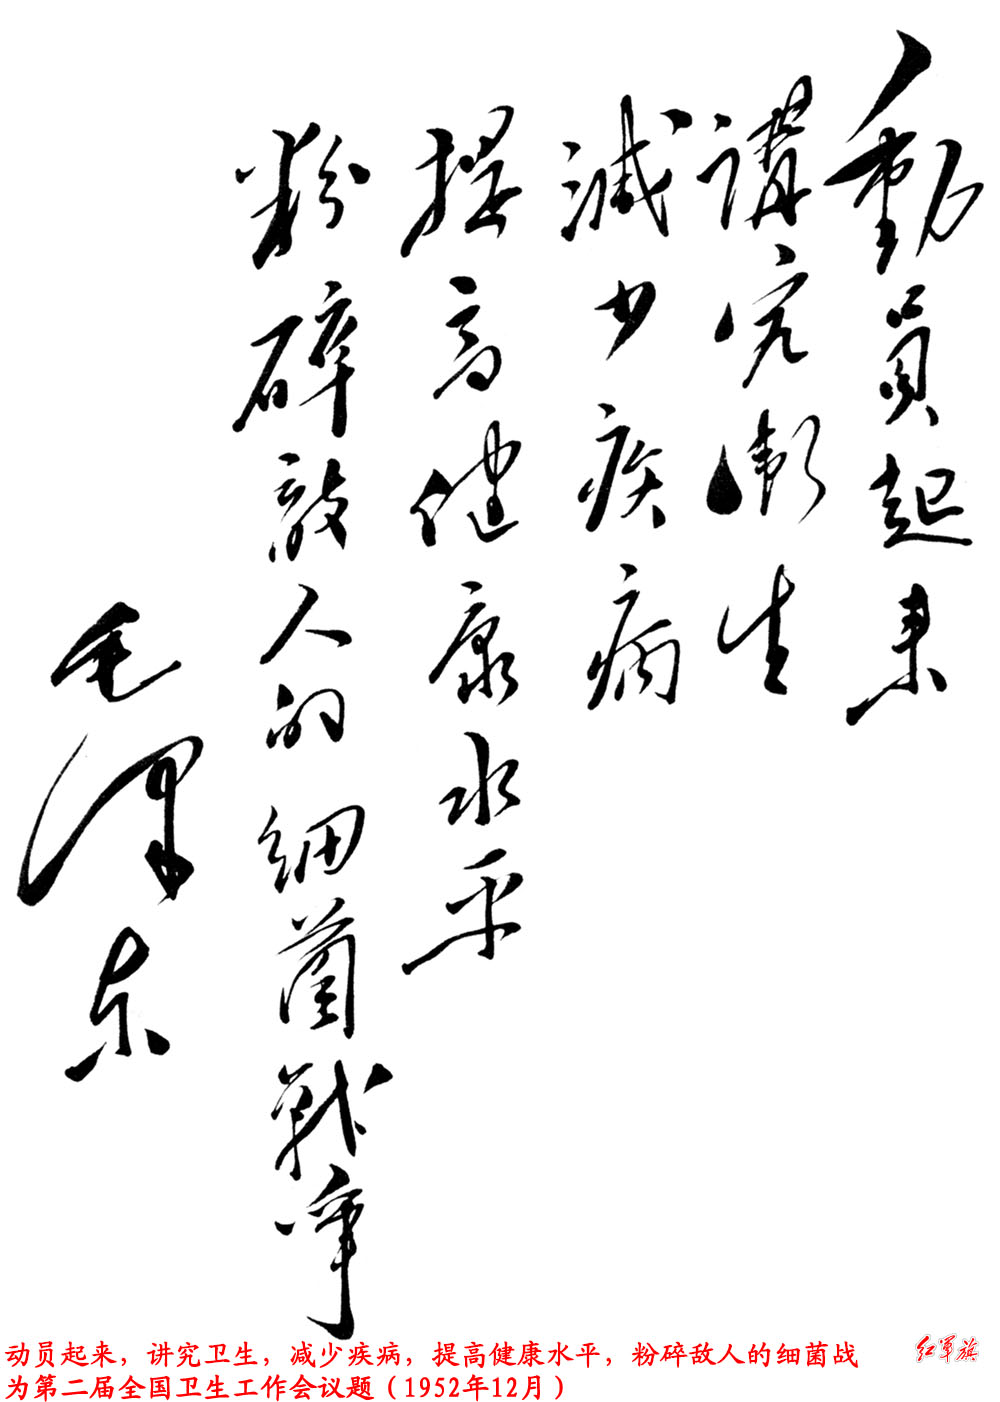 動員起来
講究衛生
減少疾病
提高健康水平
粉碎敌人的细菌戰争
毛泽东
动员起来，讲究卫生，减少疾病，提高健康水平，粉碎敌人的细菌战
为第二届全国卫生工作会议题（1952年12月）
红军旗